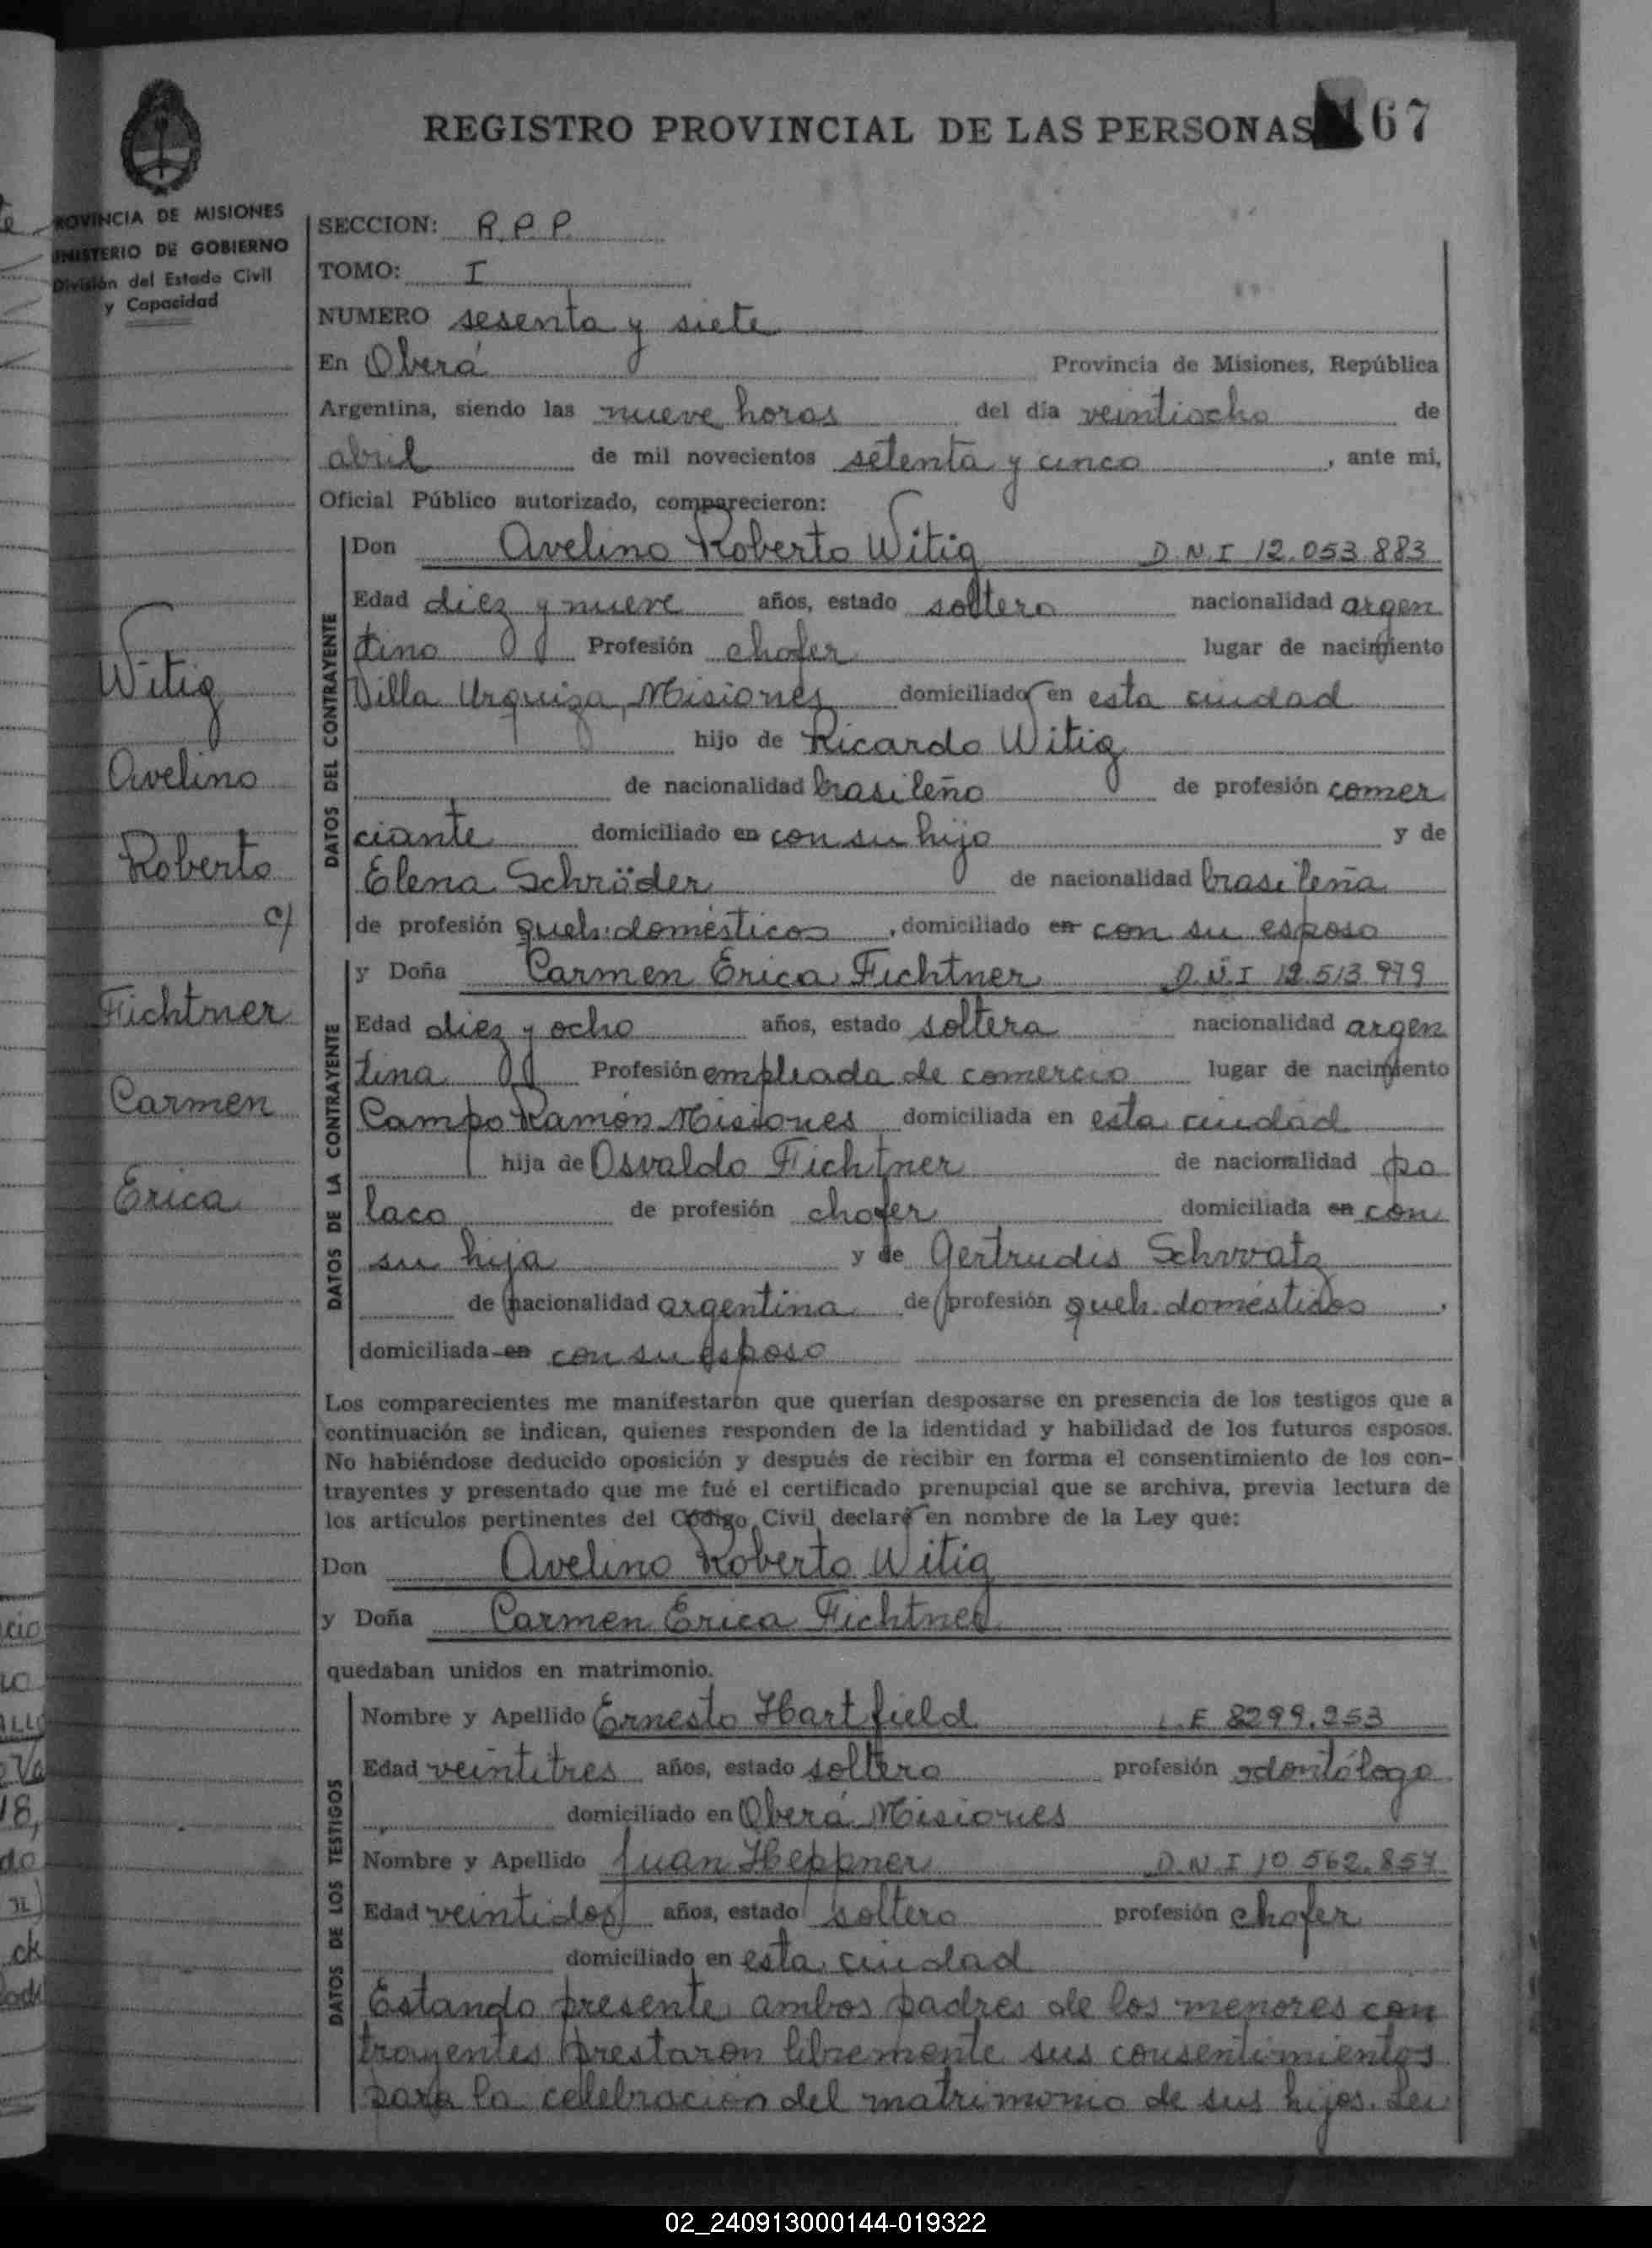 REGISTRO PROVINCIAL DE LAS PERSONAS 67
PROVINCIA DE MISIONES
MINISTERIO DE GOBIERNO
División del Estado Civil
y Capacidad
SECCION: R.P.P.
TOMO: I
NUMERO sesenta y siete
En Oberá Provincia de Misiones, República
Argentina, siendo las nueve horas del día veintiocho de
abril de mil novecientos setenta y cinco, ante mi,
Oficial Público autorizado, comparecieron:
Witig
Avelino
Roberto
c/
Fichtner
Carmen
Erica
DATOS DEL CONTRAYENTE
Don Avelino Roberto Witig D.N.I 12.053.883
Edad diez y nueve años, estado soltero nacionalidad argen
tino Profesión chofer lugar de nacimiento
Villa Urquiza, Misiones domiciliado en esta ciudad
hijo de Ricardo Witig
de nacionalidad brasileño de profesión comer
ciante domiciliado en con su hijo y de
Elena Schröder de nacionalidad brasileña
de profesión queh. domésticos, domiciliado en con su esposo
DATOS DE LA CONTRAYENTE
y Doña Carmen Erica Fichtner D.N.I 12.513.979
Edad diez y ocho años, estado soltera nacionalidad argen
tina Profesión empleada de comercio lugar de nacimiento
Campo Ramón Misiones domiciliada en esta ciudad
hija de Osvaldo Fichtner de nacionalidad po
laco de profesión chofer domiciliada en con
su hija y de Gertrudis Schwatz
de nacionalidad argentina de profesión queh. domésticos,
domiciliada en con su esposo
Los comparecientes me manifestaron que querían desposarse en presencia de los testigos que a
continuación se indican, quienes responden de la identidad y habilidad de los futuros esposos.
No habiéndose deducido oposición y después de recibir en forma el consentimiento de los con-
trayentes y presentado que me fué el certificado prenupcial que se archiva, previa lectura de
los artículos pertinentes del Código Civil declaré en nombre de la Ley que:
Don Avelino Roberto Witig
y Doña Carmen Erica Fichtner
quedaban unidos en matrimonio.
DATOS DE LOS TESTIGOS
Nombre y Apellido Ernesto Hartfield L.E 8299.253
Edad veintitres años, estado soltero profesión odontólogo
domiciliado en Oberá Misiones
Nombre y Apellido Juan Heppner D.N.I 10.562.857
Edad veintidos años, estado soltero profesión chofer
domiciliado en esta ciudad
Estando presente ambos padres de los menores con
trayentes prestaron libremente sus consentimientos
para la celebración del matrimonio de sus hijos. Lei
02_240913000144-019322